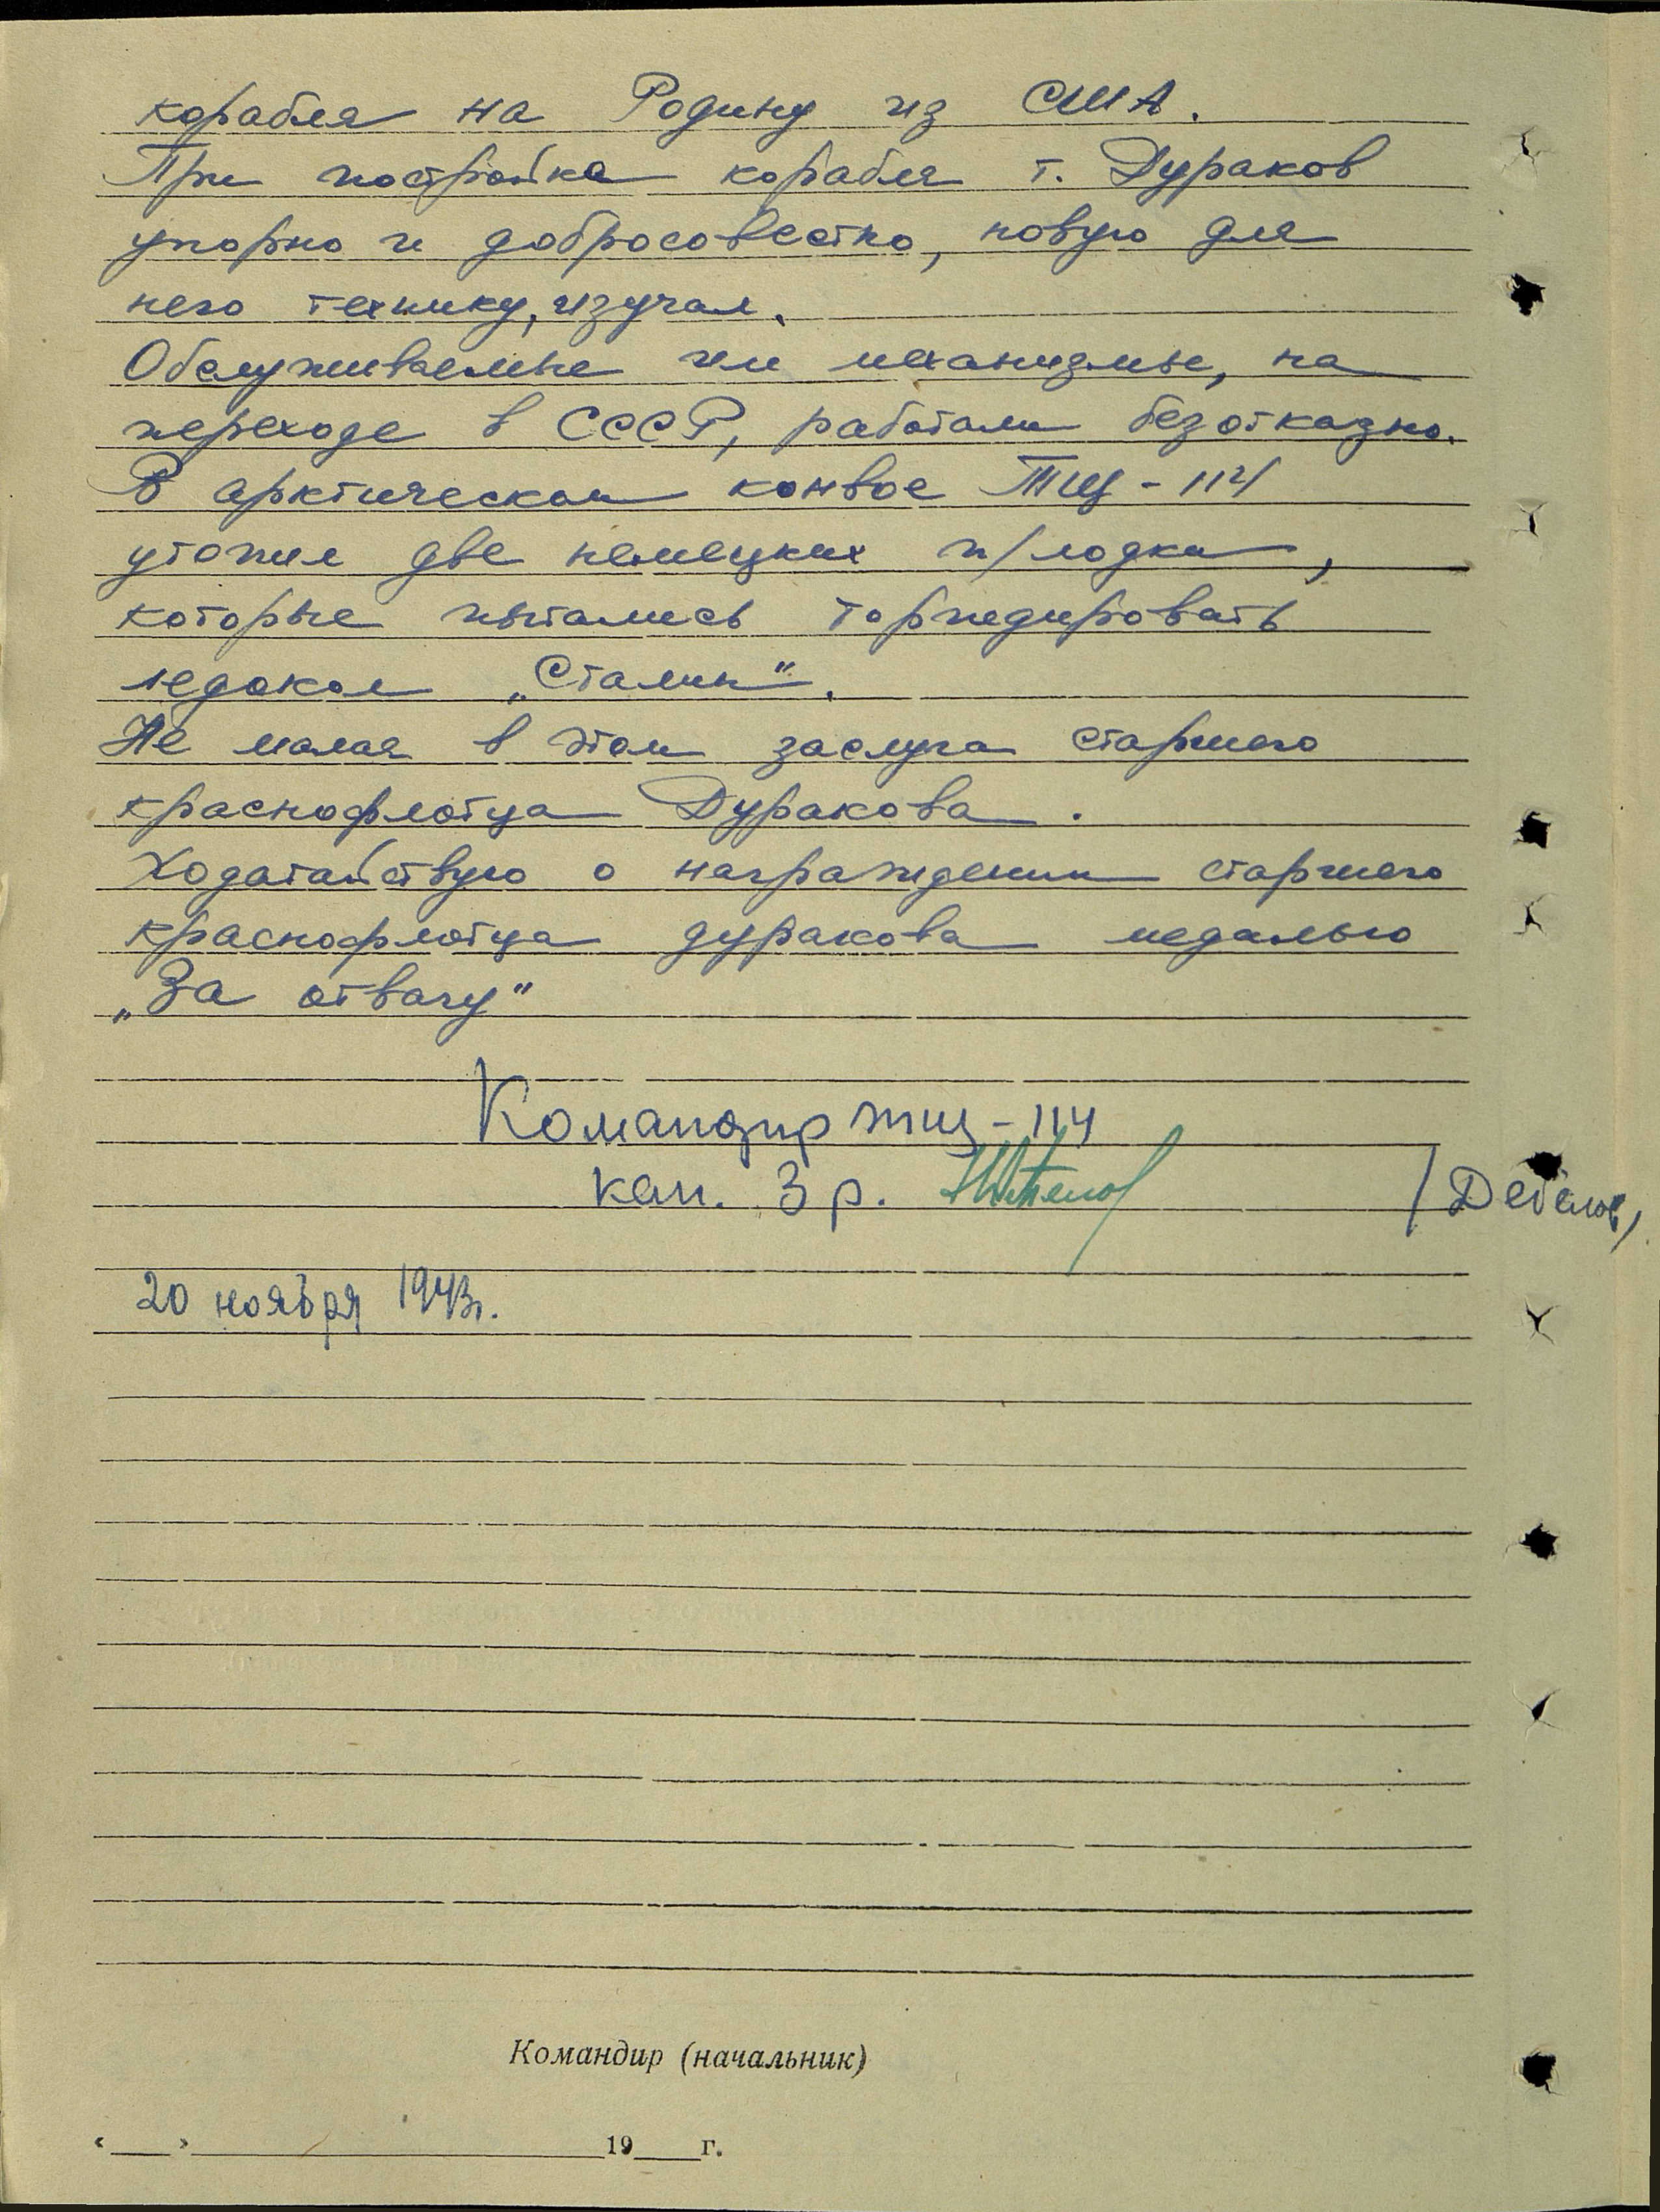 корабля на Родину из США.
При постройке корабля т. Дураков
упорно и добросовестно, новую для
него технику, изучал.
Обслуживаемые им механизмы, на
переходе в СССР, работали безотказно.
В арктическом конвое ТЩ-114
утопил две немецких п/лодки,
которые пытались торпедировать
ледокол „Сталин".
Не малая в этом заслуга старшего
краснофлотца Дуракова.
Ходатайствую о награждении старшего
краснофлотца дуракова медалью
„За отвагу"
Командир ТЩ-114
кап. 3 р. /Дебелов/
20 ноября 1943г.
Командир (начальник)
« » 19 г.